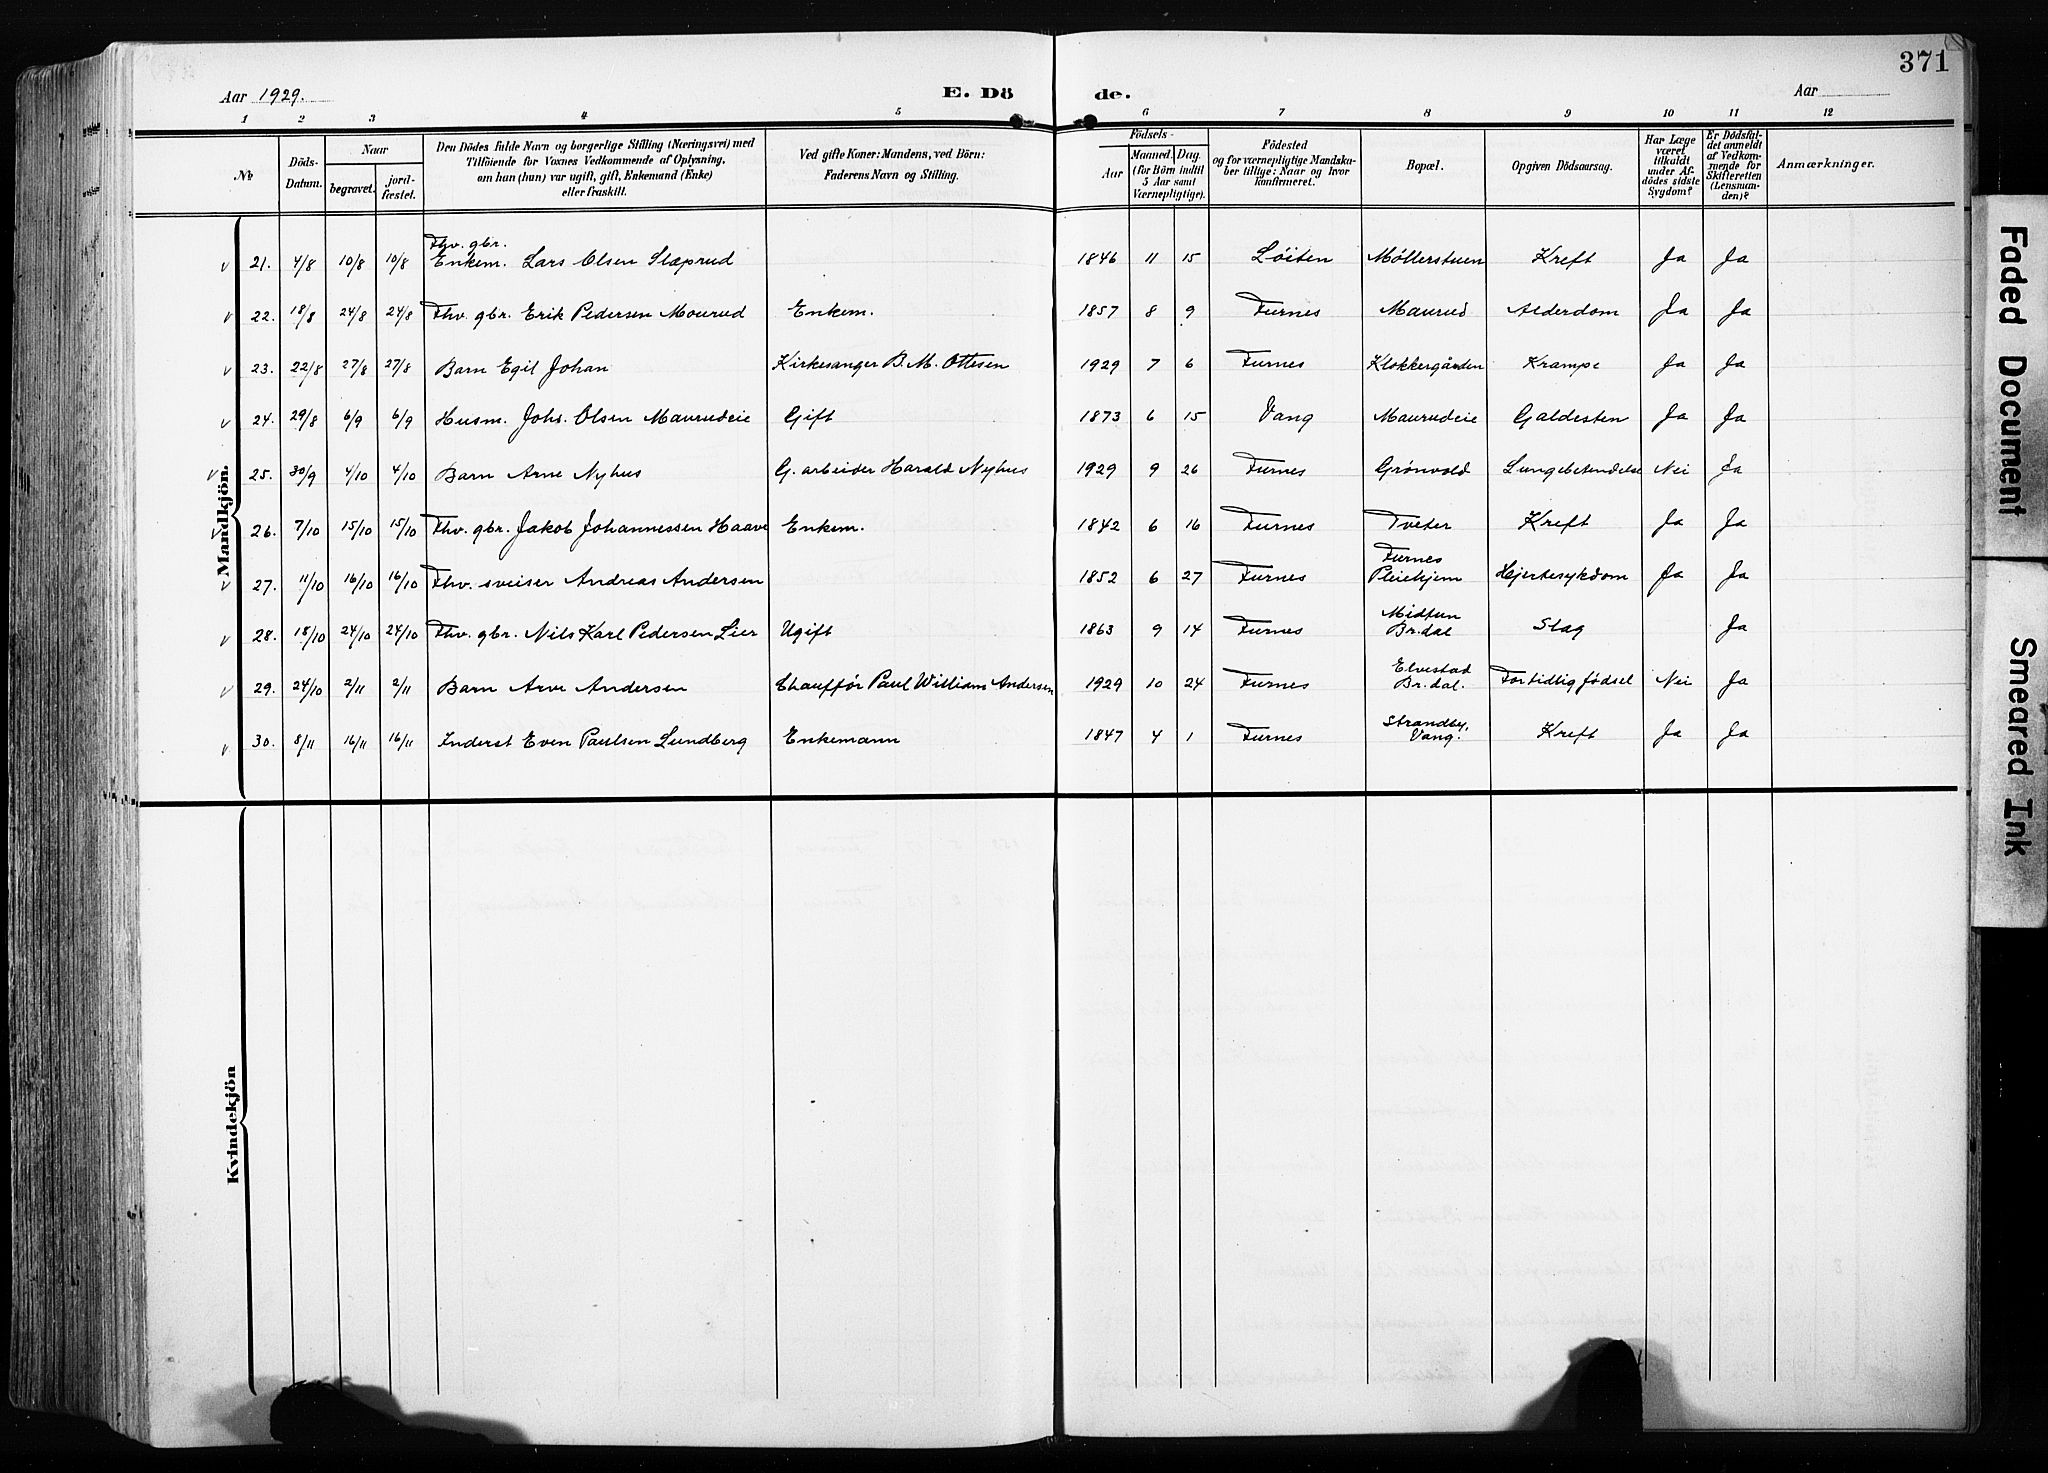 371
Aar 1929. E. Dö de. Aar
1 2 3 4 5 6 7 8 9 10 11 12
No
Döds-Datum.
Naar
begravet.
jord-fæstet.
Den Dödes fulde Navn og borgerlige Stilling (Næringsvei) med
Tilföiende for Voxnes Vedkommende af Oplysning,
om han (hun) var ugift, gift, Enkemand (Enke)
eller fraskilt.
Ved gifte Koner: Mandens, ved Börn:
Faderens Navn og Stilling.
Födsels-
Aar
Maaned. Dag.
(for Börn indtil
5 Aar samt
Værnepligtige).
Födested
og for værnepligtige Mandska-
ber tillige: Naar og hvor
konfirmeret.
Bopæl.
Opgiven Dödsaarsag.
Har Læge
været
tilkaldt
under Af-
dödes sidste
Sygdom?
Er Dödsfal-
det anmeldt
af Vedkom-
mende for
Skifteretten
(Lensman-
den)?
Anmærkninger.
Mandkjön.
v 21. 4/8 10/8 10/8 Fhv. gbr. Enkem. Lars Olsen Slæprud 1846 11 15 Löiten Möllerstuen Kreft Ja Ja
v 22. 18/8 24/8 24/8 Fhv. gbr. Erik Pedersen Mourud Enkem. 1857 8 9 Furnes Maurud Alderdom Ja Ja
v 23. 22/8 27/8 27/8 Barn Egil Johan Kirkesanger B. M. Ottesen 1929 7 6 Furnes Klokkergården Krampe Ja Ja
v 24. 29/8 6/9 6/9 Husm. Johs. Olsen Maurudeie Gift 1873 6 15 Vang Maurudeie Galdesten Ja Ja
v 25. 30/9 4/10 4/10 Barn Arne Nyhus G. arbeider Harald Nyhus 1929 9 26 Furnes Grønvold Lungebetendelse Nei Ja
v 26. 7/10 15/10 15/10 Fhv. gbr. Jakob Johannessen Haave Enkem. 1842 6 16 Furnes Tveter Kreft Ja Ja
v 27. 11/10 16/10 16/10 Fhv. sveiser Andreas Andersen 1852 6 27 Furnes Furnes Pleiehjem Hjertesykdom Ja Ja
v 28. 18/10 24/10 24/10 Fhv. gbr. Nils Karl Pedersen Lier Ugift 1863 9 14 Furnes Midtun Br.dal Slag Ja
v 29. 24/10 2/11 2/11 Barn Arve Andersen Chauffør Paul William Andersen 1929 10 24 Furnes Elvestad Br.dal. For tidlig fødsel Nei Ja
v 30. 8/11 16/11 16/11 Inderst Even Paulsen Lundberg Enkemann 1847 4 1 Furnes Strandby, Vang. Kreft Ja Ja
Kvindekjön
Faded Document
Smeared Ink